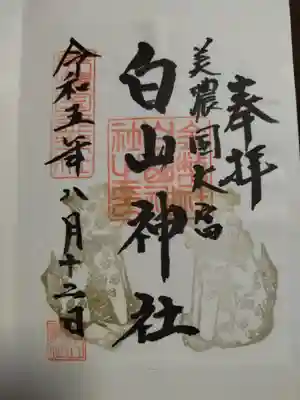 奉拝
美濃国大宮
白山神社
令和五年八月十二日